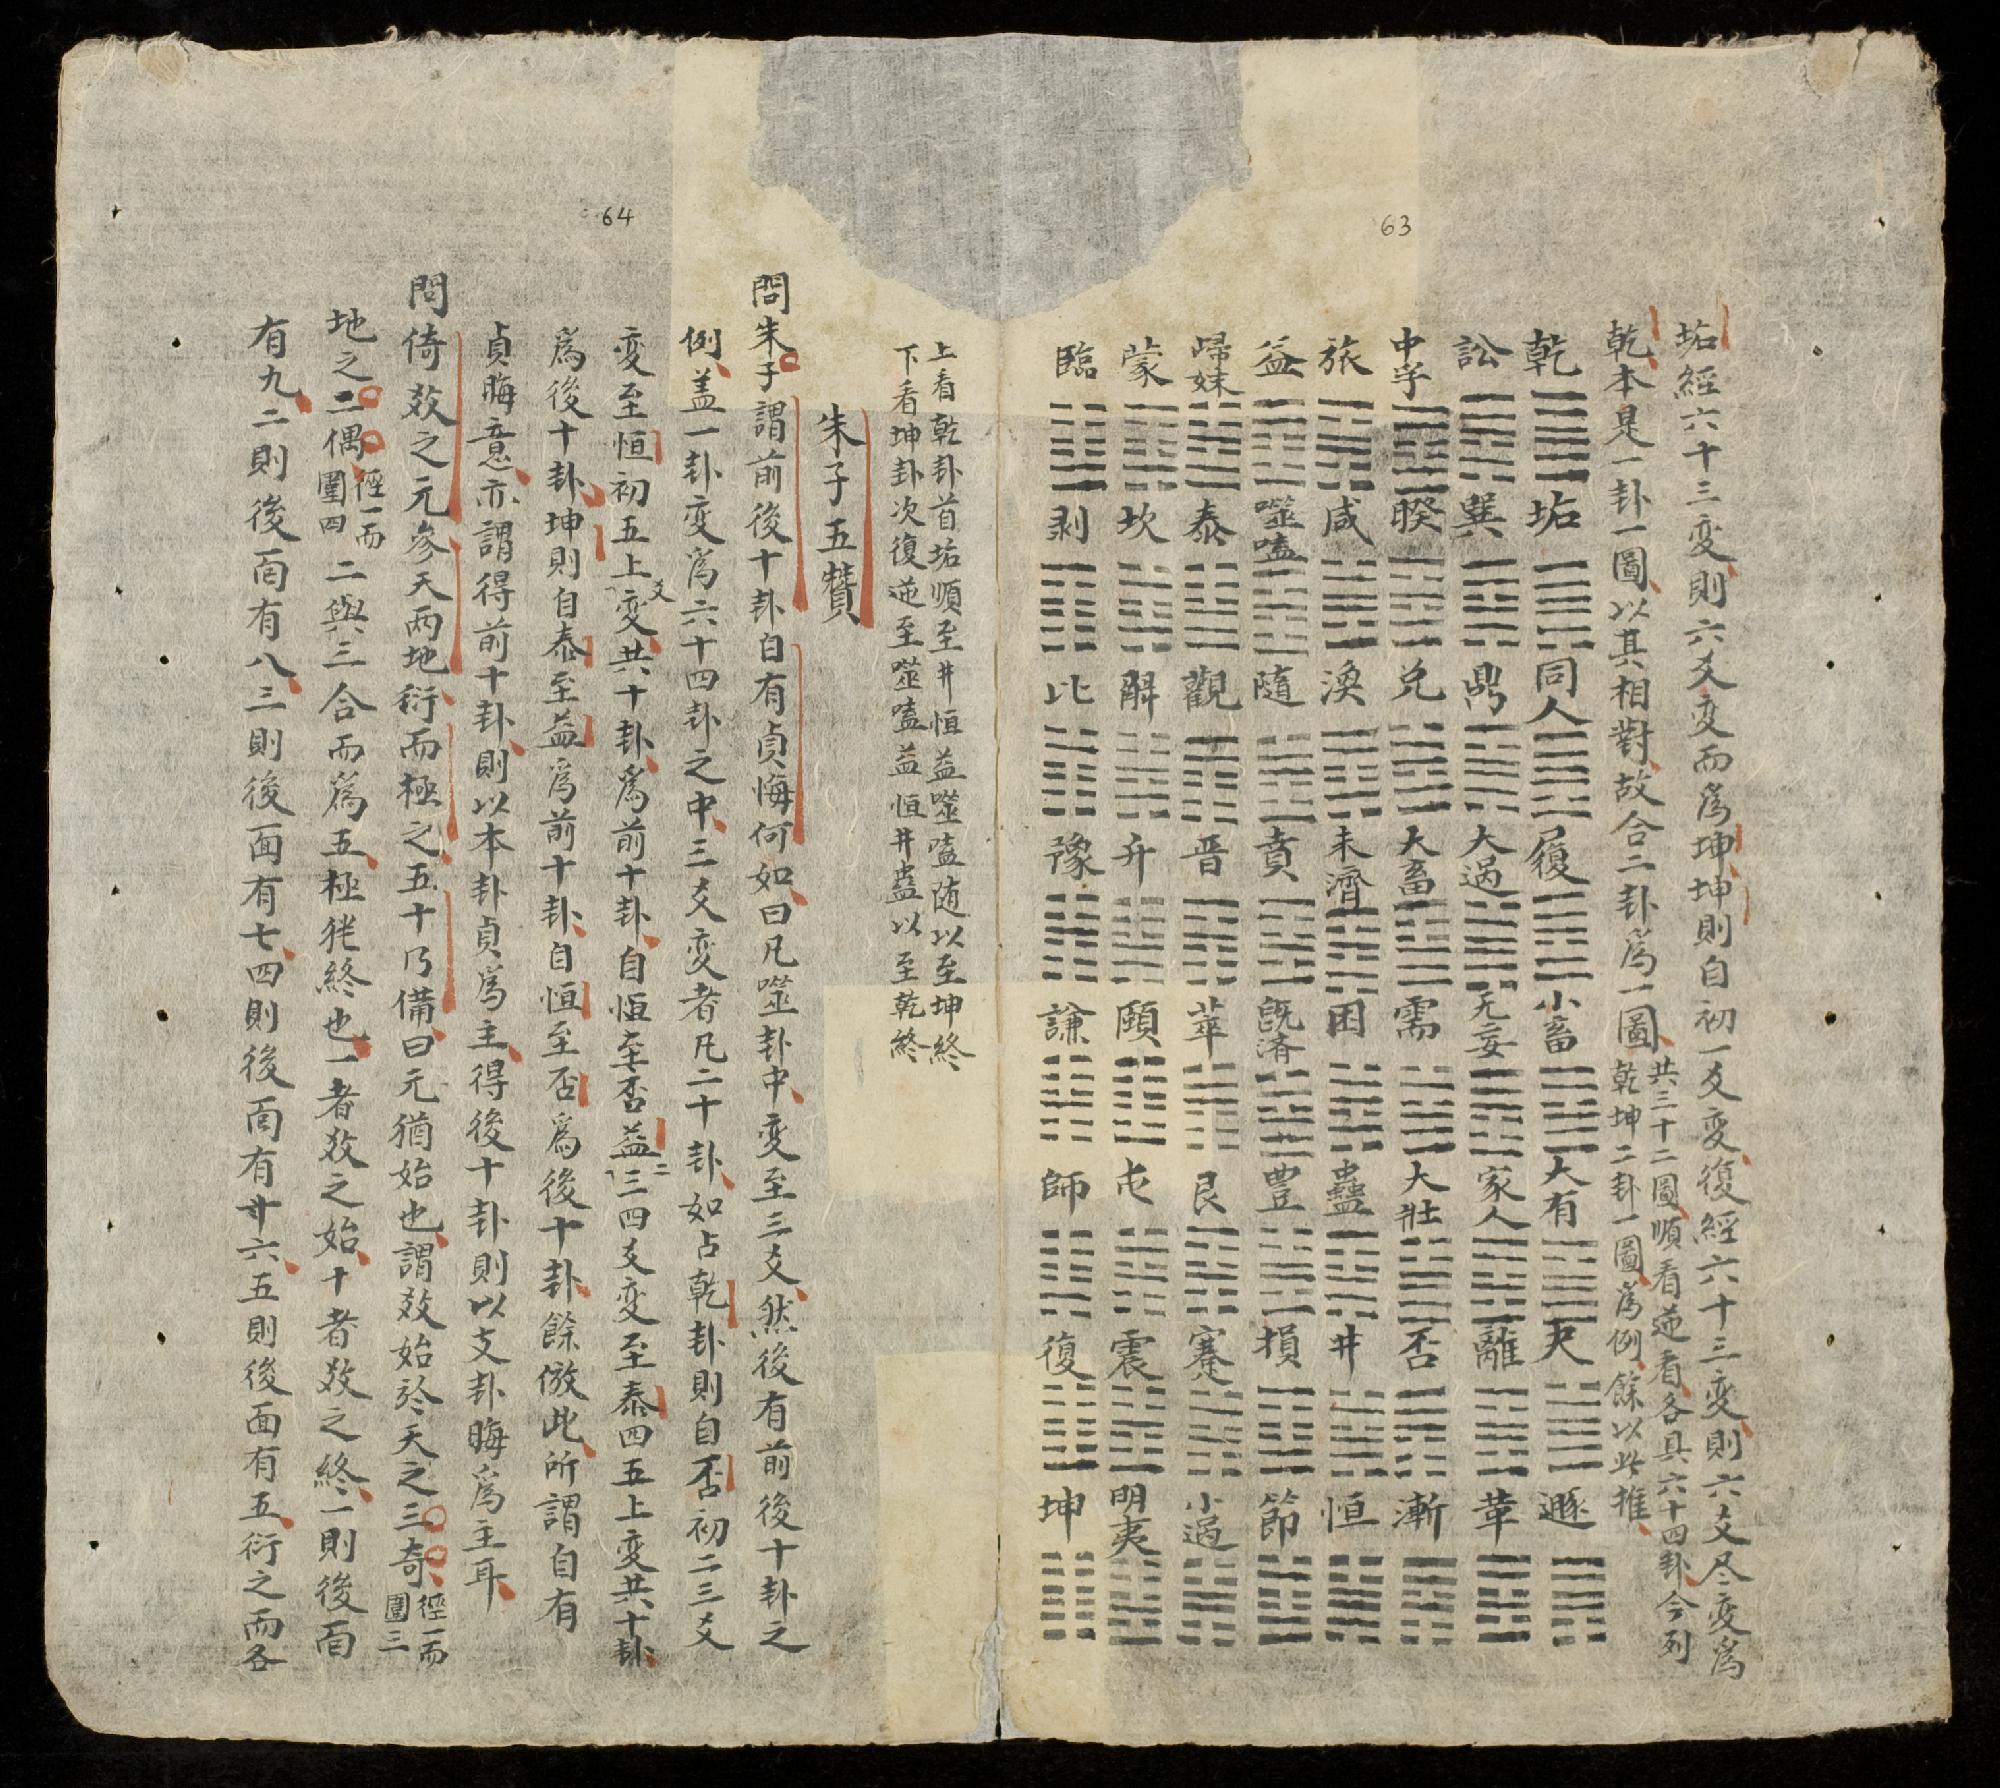 63
姤經六十三变則六爻变而爲坤坤則自初一爻变復經六十三变則六爻尽变爲
乾本是一卦一圖以其相對故合二卦爲一圖
共三十二圖順看逆看各具六十四卦今列
乾坤二卦一圖爲例餘以此推
乾 姤 同人 履 小畜 大有 夬 遯
訟 巽 鼎 大過 无妄 家人 離 革
中孚 睽 兌 大畜 需 大壯 否 漸
旅 咸 渙 未濟 困 蠱 井 恒
益 噬嗑 隨 賁 既济 豊 損 節
歸妹 泰 觀 晋 萃 艮 蹇 小過
蒙 坎 解 升 頤 屯 震 明夷
臨 剥 比 豫 謙 師 復 坤
上看乾卦首姤順至井恒益噬嗑随以至坤終
下看坤卦次復逆至噬嗑益恒井蠱以至乾終
64
朱子五贊
問朱子謂前後十卦自有貞悔何如曰凡噬卦中变至三爻然後有前後十卦之
例盖一卦变爲六十四卦之中三爻变者凡二十卦如占乾卦則自否初二三爻
变至恒初五上爻变共十卦爲前十卦自恒至否益二三四爻变至泰四五上变共十卦
爲後十卦坤則自泰至益爲前十卦自恒至否爲後十卦餘倣此所謂自有
貞晦意亦謂得前十卦則以本卦貞爲主得後十卦則以支卦晦爲主耳
問倚数之元参天兩地衍而極之五十乃備曰元猶始也謂数始於天之三奇徑一而圍三
地之二偶徑一而圍四二與三合而爲五極犹終也一者数之始十者数之終一則後面
有九二則後面有八三則後面有七四則後面有六五則後面有五衍之而各